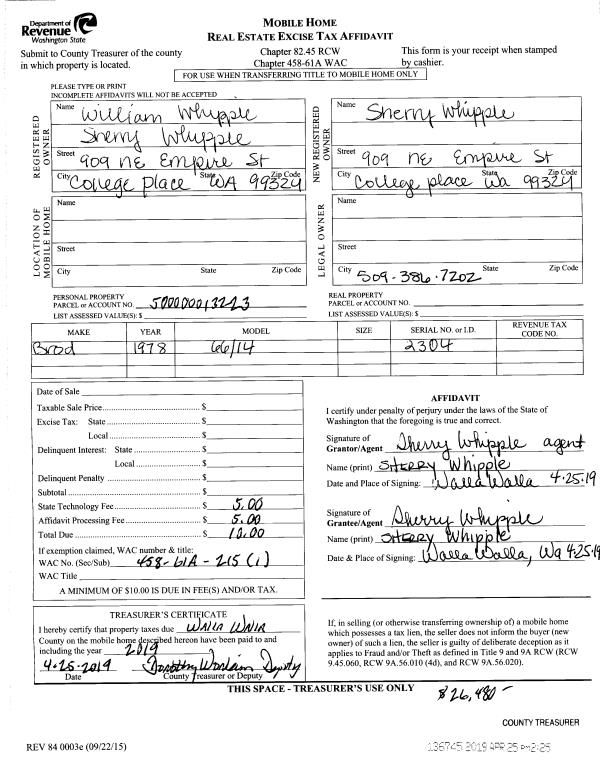 Department of
Revenue
Washington State
MOBILE HOME
REAL ESTATE EXCISE TAX AFFIDAVIT
Submit to County Treasurer of the county
in which property is located.
Chapter 82.45 RCW
Chapter 458-61A WAC
This form is your receipt when stamped
by cashier.
FOR USE WHEN TRANSFERRING TITLE TO MOBILE HOME ONLY
PLEASE TYPE OR PRINT
INCOMPLETE AFFIDAVITS WILL NOT BE ACCEPTED
REGISTERED OWNER
Name William Whipple
Sherry Whipple
Street 909 NE Empire St
City College Place State WA Zip Code 99324
NEW REGISTERED OWNER
Name Sherry Whipple
Street 909 NE Empire St
City College place State Wa Zip Code 99324
LOCATION OF MOBILE HOME
Name
Street
City State Zip Code
LEGAL OWNER
Name
Street
City State Zip Code
509-386-7202
PERSONAL PROPERTY
PARCEL or ACCOUNT NO.
LIST ASSESSED VALUE(S): $
REAL PROPERTY
PARCEL or ACCOUNT NO.
LIST ASSESSED VALUE(S): $
MAKE YEAR MODEL SIZE SERIAL NO. or I.D. REVENUE TAX CODE NO.
Brod 1978 66/14 2304
Date of Sale
Taxable Sale Price $
Excise Tax: State $
Local $
Delinquent Interest: State $
Local $
Delinquent Penalty $
Subtotal $
State Technology Fee $ 5.00
Affidavit Processing Fee $ 5.00
Total Due $ 10.00
If exemption claimed, WAC number & title:
WAC No. (Sec/Sub) 458-61A-215 (1)
WAC Title
A MINIMUM OF $10.00 IS DUE IN FEE(S) AND/OR TAX.
AFFIDAVIT
I certify under penalty of perjury under the laws of the State of
Washington that the foregoing is true and correct.
Signature of
Grantor/Agent Sherry Whipple agent
Name (print) SHERRY Whipple
Date and Place of Signing: Walla Walla 4-25-19
Signature of
Grantee/Agent Sherry Whipple
Name (print) SHERRY Whipple
Date & Place of Signing: Walla Walla, Wa 4-25-19
TREASURER'S CERTIFICATE
I hereby certify that property taxes due Walla Walla
County on the mobile home described hereon have been paid to and
including the year 2019
4-25-2019 Dorothy Deputy
Date County Treasurer or Deputy
If, in selling (or otherwise transferring ownership of) a mobile home
which possesses a tax lien, the seller does not inform the buyer (new
owner) of such a lien, the seller is guilty of deliberate deception as it
applies to Fraud and/or Theft as defined in Title 9 and 9A RCW (RCW
9.45.060, RCW 9A.56.010 (4d), and RCW 9A.56.020).
THIS SPACE - TREASURER'S USE ONLY
$26,480-
COUNTY TREASURER
REV 84 0003e (09/22/15)
136745 2019 APR 25 PM2:25